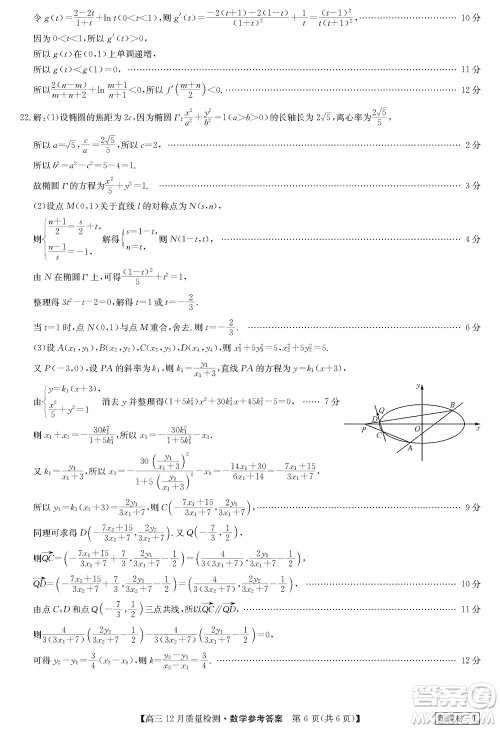 令 g(t)=2(t-1)/(t+1)+ln t(0<t<1)，则 g′(t)=[-2(t+1)-2(1-t)]/(t+1)²+1/t=(t-1)²/[t(t+1)²]. 10 分
因为 0<t<1，所以 g′(t)>0，
所以 g(t) 在(0,1)上单调递增，
所以 g(t)<g(1)=0. 11 分
所以 2(n-m)/(m+n)+ln m/n<0，所以 f′((m+n)/2)<0. 12 分
22.解：(1)设椭圆的焦距为 2c，因为椭圆 Γ：x²/a²+y²/b²=1(a>b>0)的长轴长为 2√5，离心率为 2√5/5，
所以 a=√5，c/a=2√5/5，所以 c=2， 2 分
所以 b²=a²-c²=5-4=1.
故椭圆 Γ 的方程为 x²/5+y²=1. 3 分
(2)设点 M(0,1)关于直线 l 的对称点为 N(s,n)，
则{(n+1)/2=s/2+t，(n-1)/s=-1，解得{s=1-t，n=t，则 N(1-t,t). 4 分
由 N 在椭圆 Γ 上，可得 (1-t)²/5+t²=1，
整理得 3t²-t-2=0，解得 t=1 或 t=-2/3.
当 t=1 时，点 N(0,1)与点 M 重合，舍去. 则 t=-2/3. 6 分
(3)设 A(x₁,y₁)，B(x₂,y₂)，C(x₃,y₃)，D(x₄,y₄)，则 x₁²+5y₁²=5，x₂²+5y₂²=5，
又 P(-3,0)，设 PA 的斜率为 k₁，则 k₁=y₁/(x₁+3)，直线 PA 的方程为 y=k₁(x+3)，
由{y=k₁(x+3)，x²/5+y²=1，消去 y 并整理得(1+5k₁²)x²+30k₁²x+45k₁²-5=0， 7 分
则 x₁+x₃=-30k₁²/(1+5k₁²)，x₃=-30k₁²/(1+5k₁²)-x₁，
又 k₁=y₁/(x₁+3)，则 x₃=-30(y₁/(x₁+3))²/[1+5(y₁/(x₁+3))²]-x₁=(-7x₁-15)/(3x₁+7)，
所以 y₃=k₁(x₃+3)=2y₁/(3x₁+7)，则 C(-(7x₁+15)/(3x₁+7)，2y₁/(3x₁+7)). 9 分
同理可求得 D(-(7x₂+15)/(3x₂+7)，2y₂/(3x₂+7)).
则QC=(-(7x₁+15)/(3x₁+7)+7/3，2y₁/(3x₁+7)-1/2)=(4/[3(3x₁+7)]，2y₁/(3x₁+7)-1/2)，
QD=(-(7x₂+15)/(3x₂+7)+7/3，2y₂/(3x₂+7)-1/2)=(4/[3(3x₂+7)]，2y₂/(3x₂+7)-1/2)， 10 分
由点 C，D 和点 Q(-7/3，1/2)三点共线，所以QC∥QD， 11 分
y
B
P
O
x
A
【高三 12 月质量检测·数学参考答案 第 6 页(共 6 页)】